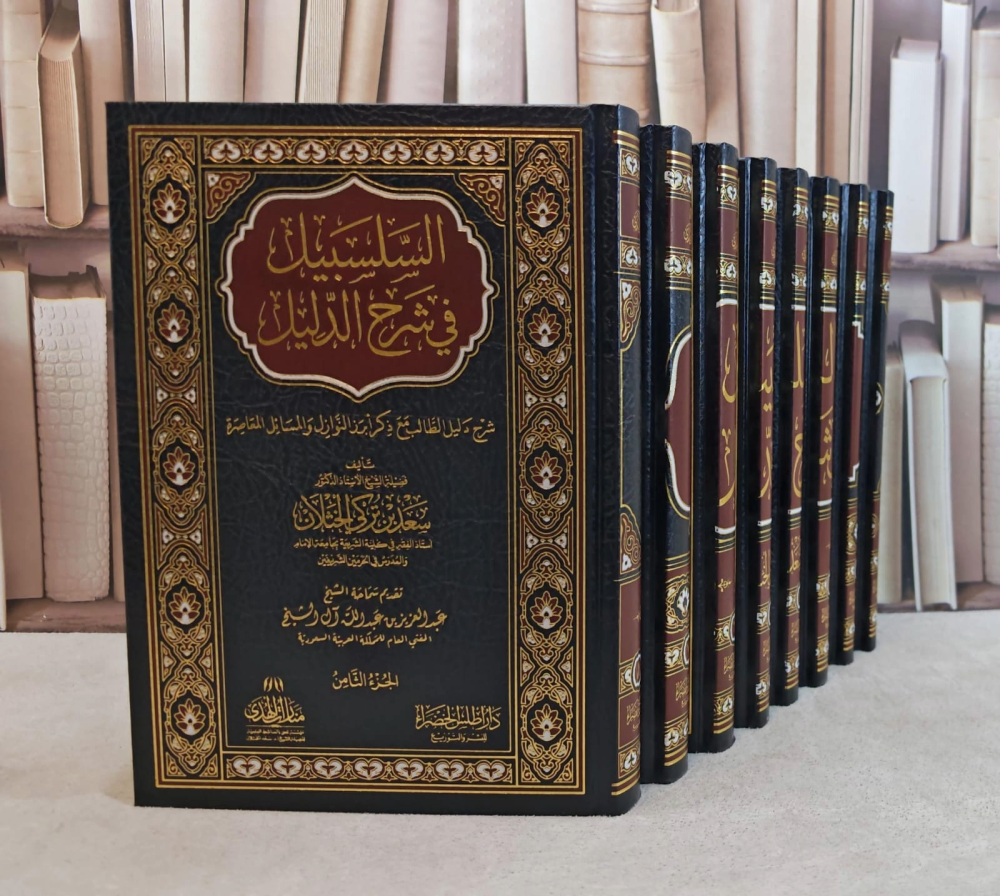 السَّلسَبيل
في شَرح الدَّليل
شرح دليل الطالب مع ذكر أبرز النوازل والمسائل المعاصرة
تأليف
فضيلة الشيخ الأستاذ الدكتور
سعد بن تركي الخثلان
أستاذ الفقه في كلية الشريعة بجامعة الإمام
والمدرس في الحرمين الشريفين
تقديم سماحة الشيخ
عبد العزيز بن عبد الله آل الشيخ
المفتي العام للمملكة العربية السعودية
الجزء الثامن
دار أطلس الخضراء
للنشر والتوزيع
منارات الهدى